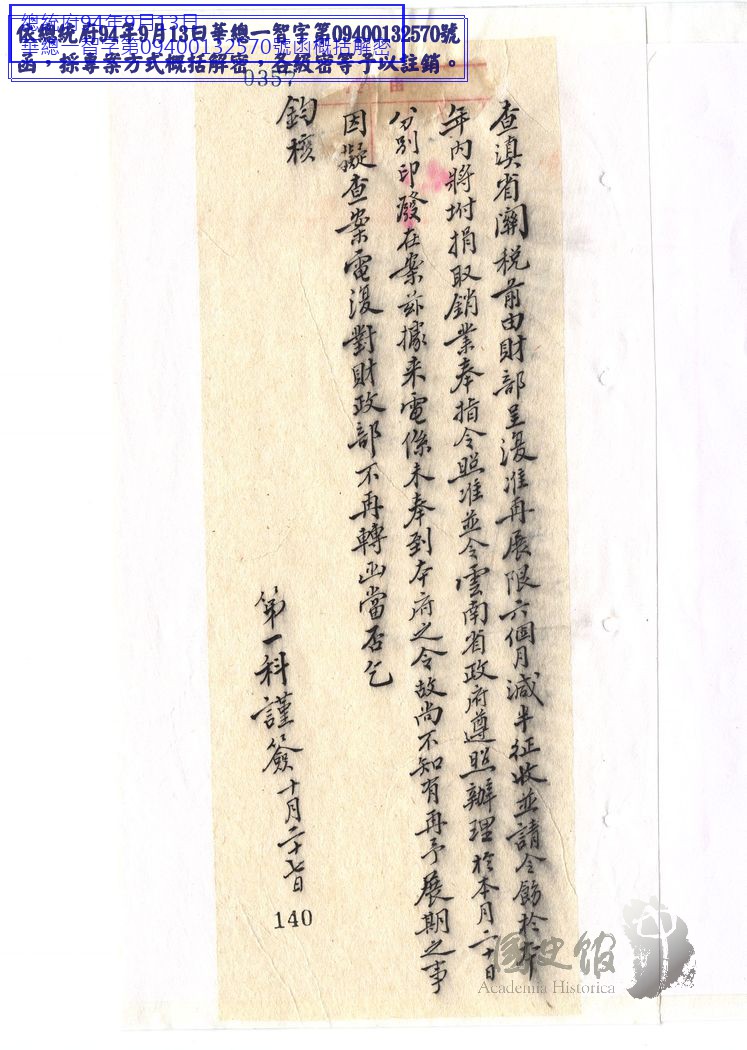 總統府94年9月13日
華總一智字第09400132570號函概括解密
依總統府94年9月13日華總一智字第09400132570號
函，採專案方式概括解密，各級密等予以註銷。
0357
查滇省關税前由財部呈復准再展限六個月減半征收並請令飭於本
年内將坿捐取銷業奉指令照准並令雲南省政府遵照辦理於本月二十日
分別印發在案茲據来電係未奉到本府之令故尚不知有再予展期之事
因擬查案電復對財政部不再轉函當否乞
鈞核
第一科謹簽十月二十七日
140
國史館
Academia Historica